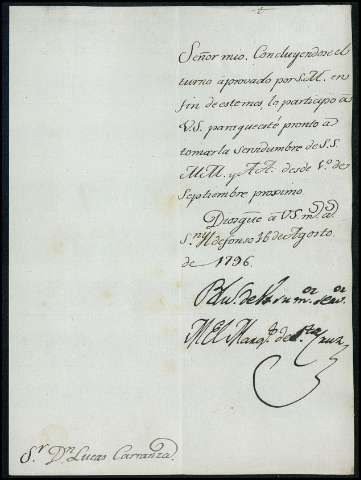 Señor mio. Concluyendose el
turno aprovado por S.M. en
fin de este mes, lo participo à
V.S. para que esté pronto à
tomar la servidumbre de S.S.
M.M. y A.A. desde 1.º de
Septiembre proximo.
Dios gue à V.S. m.s a.s
S.n Yldefonso 16 de Agosto
de 1796.
B.l.m. de V.S. su m.or ser.or
El Marq.s de S.ta Cruz
S.r D.n Lucas Carranza.